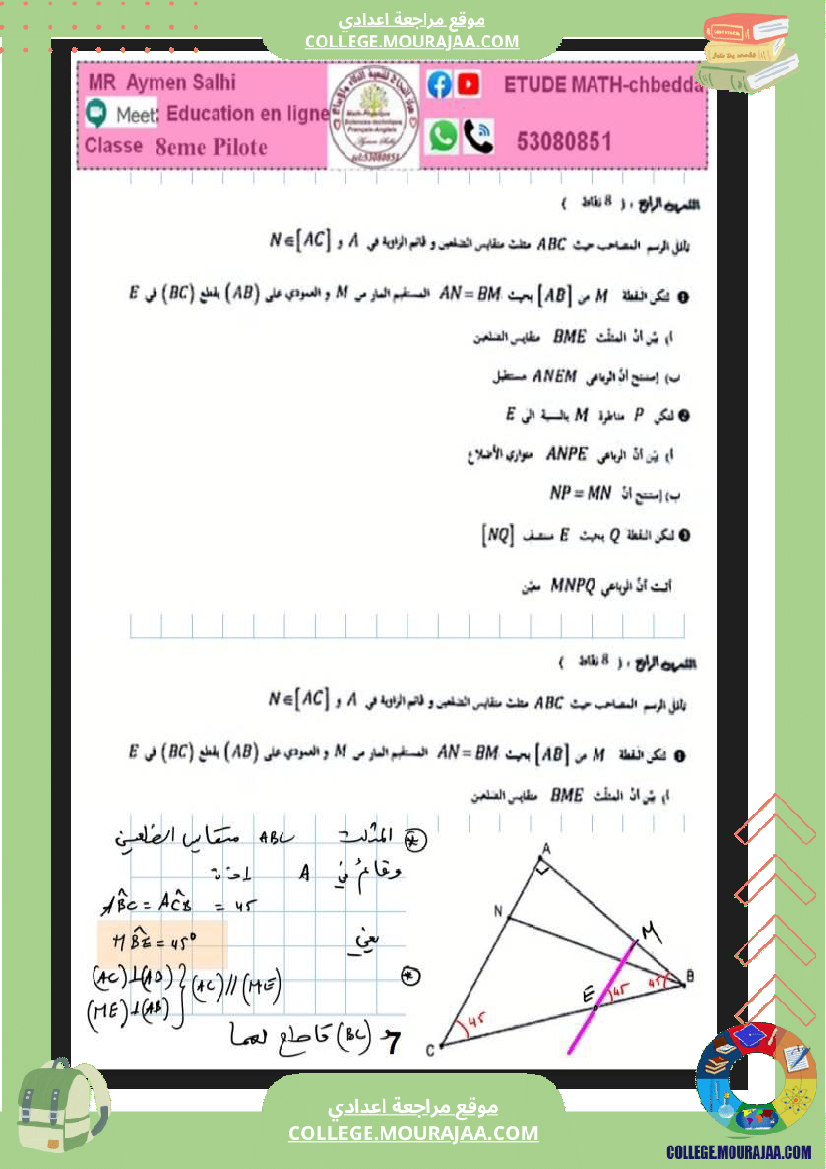 موقع مراجعة اعدادي
COLLEGE.MOURAJAA.COM
MR Aymen Salhi
Meet: Education en ligne
Classe 8eme Pilote
Math-Physique
Sciences-technique
Français-Anglais
Aymen Salhi
tel:53080851
ETUDE MATH-chbedda
53080851
التمرين الرابع : ( 8 نقاط )
تأمّل الرسم المصاحب حيث ABC مثلث متقايس الضلعين و قائم الزاوية في A و N∈[AC]
❶ لتكن النقطة M من [AB] بحيث AN = BM المستقيم المار من M و العمودي على (AB) يقطع (BC) في E
أ) بيّن أنّ المثلّث BME متقايس الضلعين
ب) إستنتج أنّ الرباعي ANEM مستطيل
❷ لتكن P مناظرة M بالنسبة الى E
أ) بيّن أنّ الرباعي ANPE متوازي الأضلاع
ب) إستنتج أنّ NP = MN
❸ لتكن النقطة Q بحيث E منتصف [NQ]
أثبت أنّ الرباعي MNPQ معيّن
التمرين الرابع : ( 8 نقاط )
تأمّل الرسم المصاحب حيث ABC مثلث متقايس الضلعين و قائم الزاوية في A و N∈[AC]
❶ لتكن النقطة M من [AB] بحيث AN = BM المستقيم المار من M و العمودي على (AB) يقطع (BC) في E
أ) بيّن أنّ المثلّث BME متقايس الضلعين
* المثلث ABC متقايس الضلعين
وقائم في A إذن
AB̂C = AĈB = 45
يعني MB̂E = 45°
* (AC)⊥(AB)
(ME)⊥(AB)
} (AC)//(ME)
و (BC) قاطع لهما
7
A
N
M
B
E
45
45
45
C
موقع مراجعة اعدادي
COLLEGE.MOURAJAA.COM
COLLEGE.MOURAJAA.COM